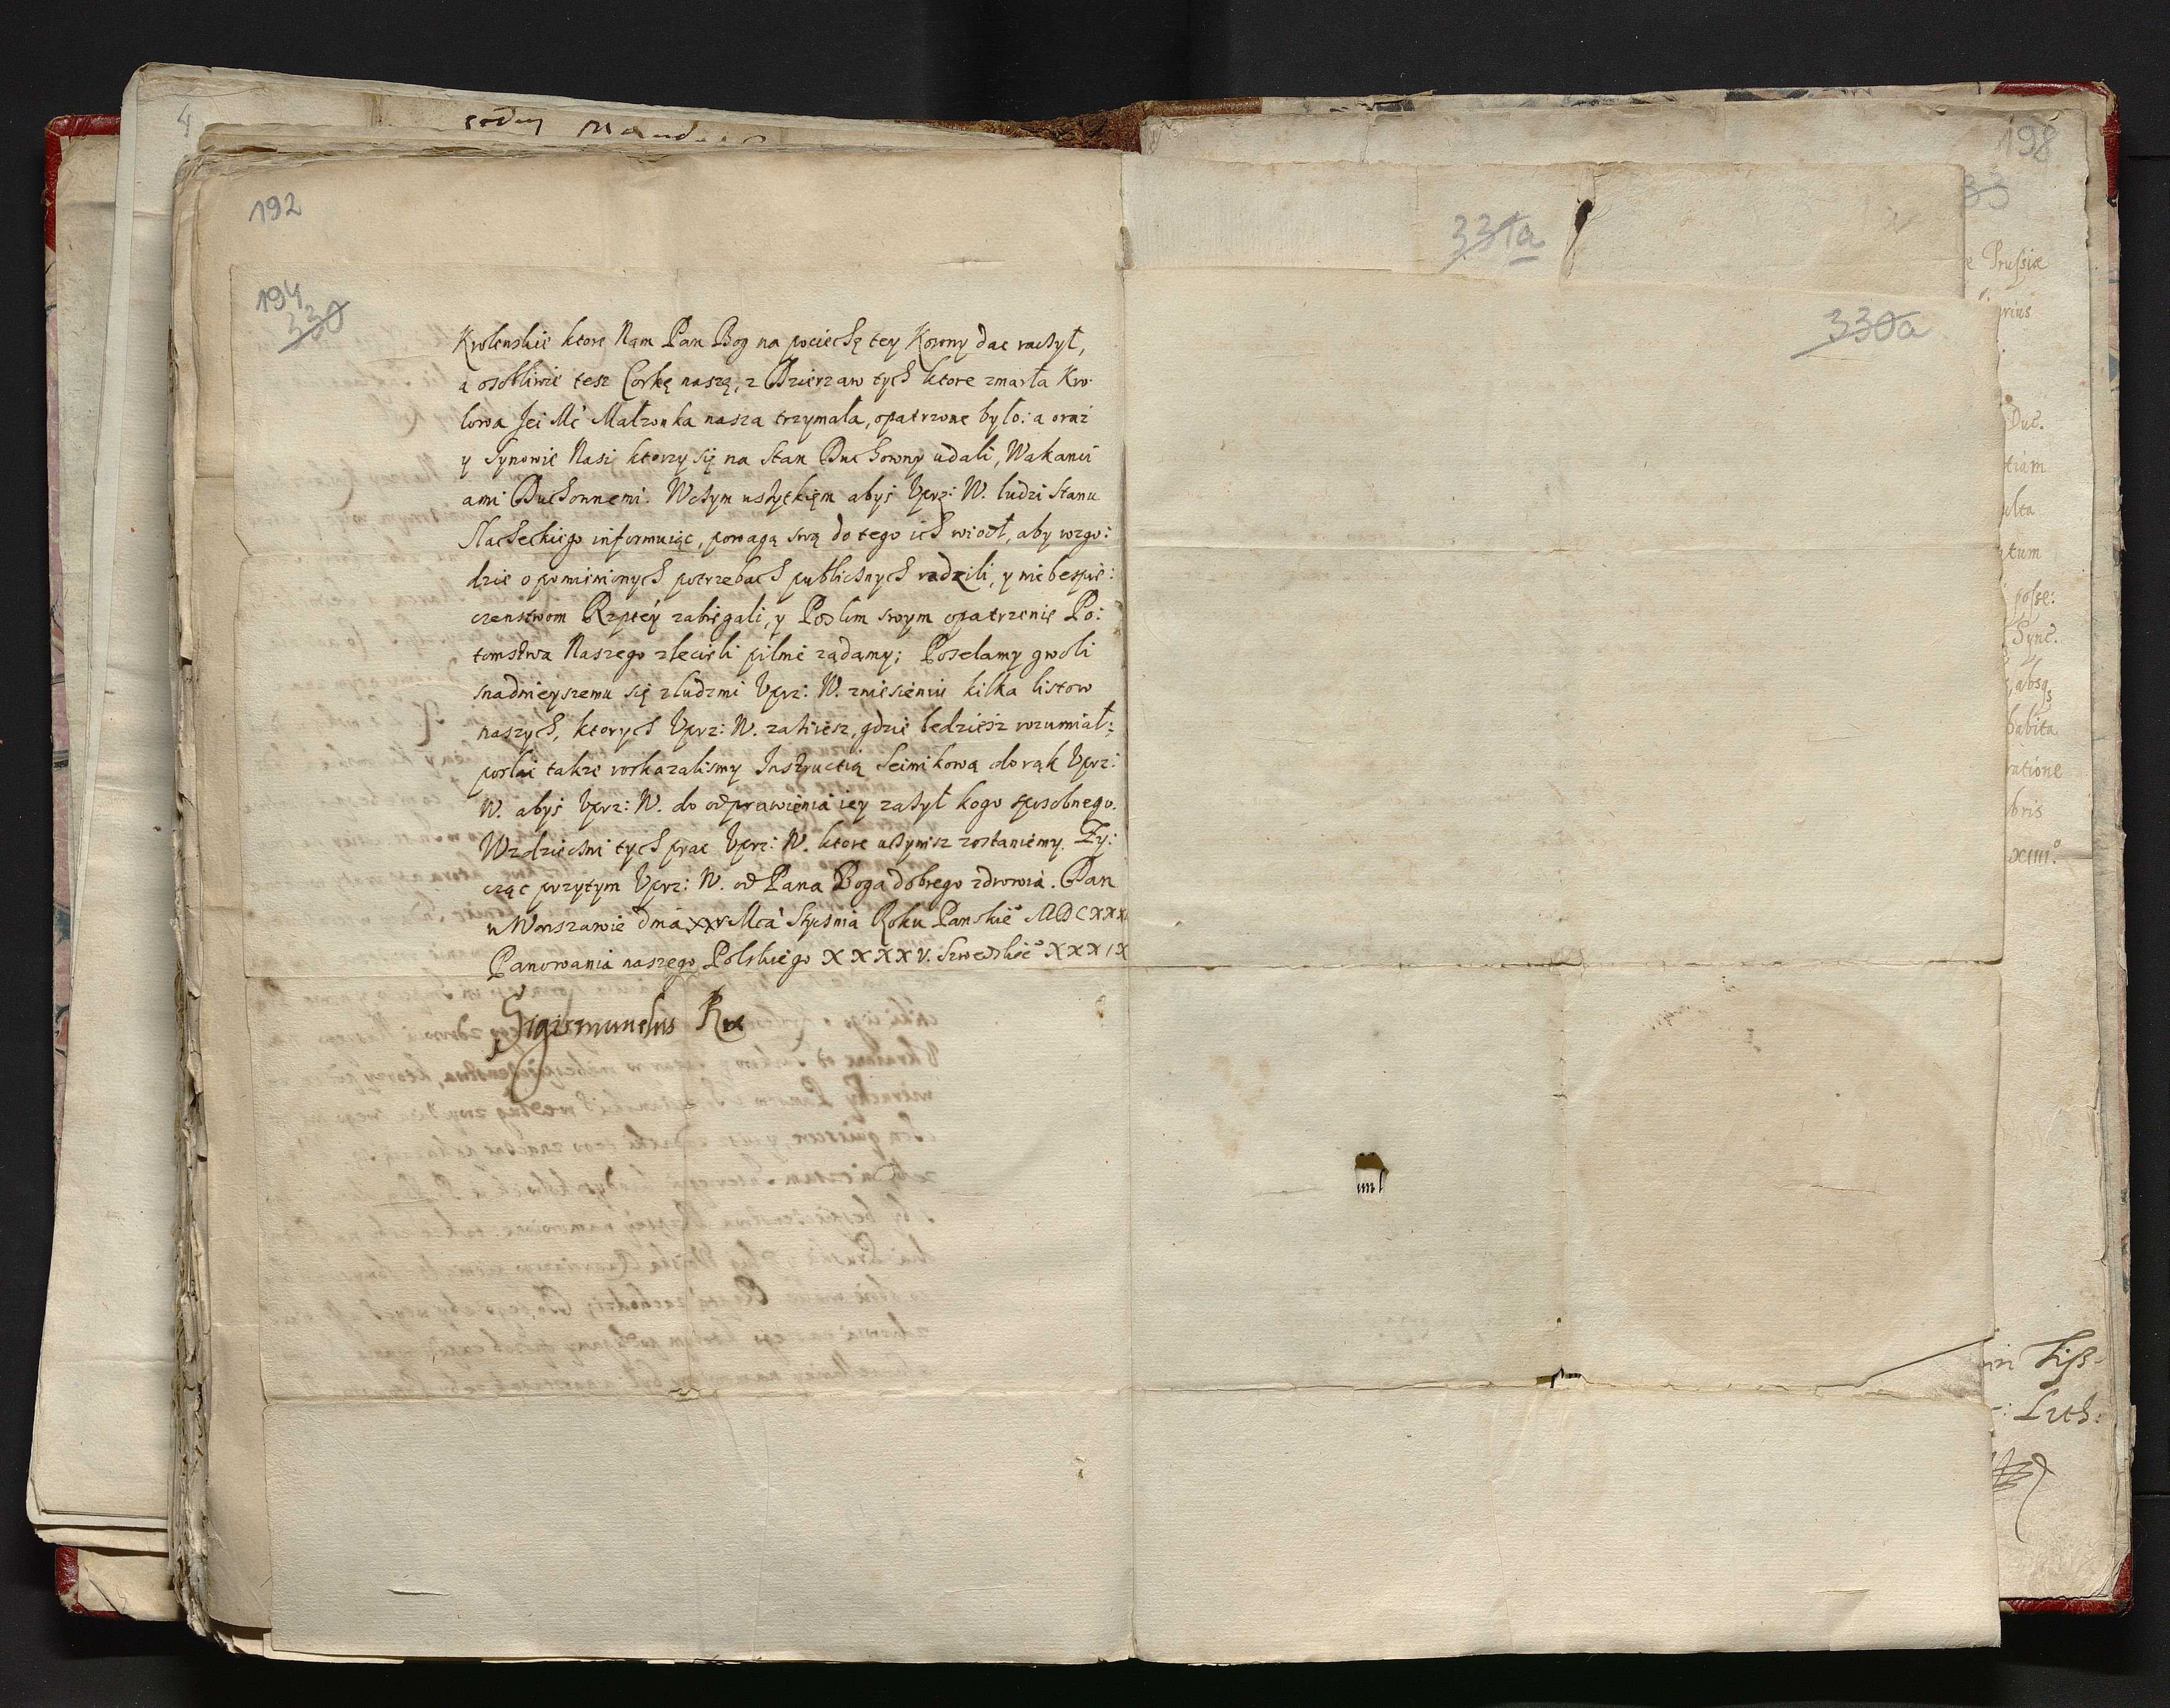 192
194
330
Krolenskie ktore Nam Pan Bog na pociechę tey Korony dac raczył,
a osobliwie tesz Corkę naszą, z Dzierzaw tych ktore zmarła Kro:
lowa Jei Mć Małzonka nasza trzymała, opatrzone było: a oraz
y Synowie Nasi ktorzy się na stan Duchowny udali, Wakanci
ami Duchownemi. Wczym wszytkięm abyś Vprz: W. ludzi stanu
Slacheckiego informuiąc, powagą swą do tego ich wiodł, aby wzgo:
dzie o pomienionych potrzebach publicznych radzili, y niebespie:
czenstwom Rzptey zabiegali, y Posłom swym opatrzenie Po:
tomstwa Naszego zlecieli pilnie ządamy; Poselamy gwoli
snadnieyszemu się z ludzmi Vprz: W. zniesieniu kilka listow
naszych, ktorych Vprz: W. zażiiesz, gdzie bedziesz rozumiał:
posłac takze roskazalismy Instructią Seimikową do rąk Vprz:
W. abyś Vprz: W. do odprawienia iey zażył kogo sposobnego.
Wzdzieczni tych prac Vprz: W. ktore uczynisz zostaniemy. Zy:
cząc przytym Vprz: W. od Pana Boga dobrego zdrowia. Dan
w Warszawie dnia XXV Mca Stycznia Roku Panskie° MDCXXX
Panowania naszego Polskiego XXXXV. Szwedskie° XXXIX
Sigismundus Rex
331a
330a
198
33
Prussiæ
Duc.
tum
posse:
Sync.
habita
ratione
bris
XIIII.°